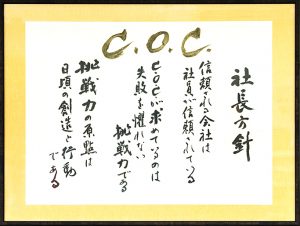 C.O.C.
社長方針
信頼される会社は
社員が信頼されている
C.O.C.が求めているのは
失敗を懼れない
挑戦力である
挑戦力の原點は
日頃の創造と行動
である